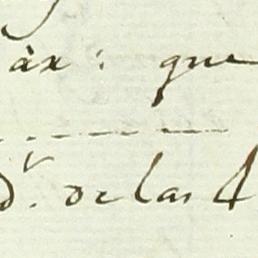 àx: que
d.r de las